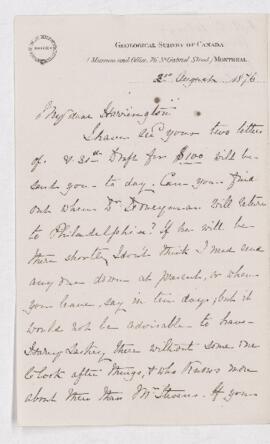 GEOLOGICAL SURVEY OF CANADA
(Museum and Office, 76 St Gabriel Street) MONTREAL
2nd August 1876
My dear Harrington
I have rec'd your two letters
of & 31st Draft for $100 will be
sent you to day. Can you find
out when Dr Honeyman will return
to Philadelphia? If he will be
there shortly I don't think I need send
any one down at present, or when
you leave, say in ten days, but it
would not be advisable to have
there without some one
to look after things, & who knows more
about them than Mr Stevens. If you